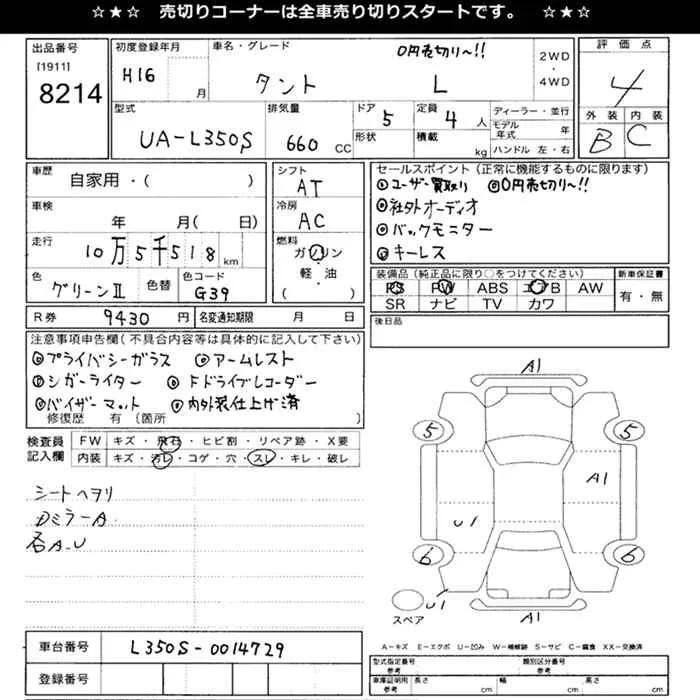 ☆★☆ 売切りコーナーは全車売り切りスタートです。 ☆★☆
出品番号
[1911]
8214
初度登録年月
H16 月
車名・グレード
0円売切り〜!!
タント L
2WD
・
4WD
評価点
4
型式
UA-L350S
排気量
660 CC
ドア
5
形状
定員
4 人
積載
kg
ディーラー・並行
モデル年式 年
ハンドル 左・右
外装 内装
B C
車歴
自家用・( )
車検
年 月( 日)
走行
10万5千518 km
色
グリーンII
色替
色コード
G39
シフト
AT
冷房
AC
燃料
ガソリン
軽・油
( )
セールスポイント(正常に機能するものに限ります)
◎ユーザー買取り ◎0円売切り〜!!
◎社外オーディオ
◎バックモニター
◎キーレス
装備品(純正品に限り○をつけてください)
PS PW ABS エアB AW
SR ナビ TV カワ
新車保証書
有・無
後日品
R券 9430 円
名変通知期限 月 日
注意事項申告欄(不具合内容等は具体的に記入して下さい)
◎プライバシーガラス ◎アームレスト
◎シガーライター ◎Fドライブレコーダー
◎バイザーマット ◎内外装仕上げ済
修復歴 有 〔箇所 〕
検査員
記入欄
FW キズ・飛石・ヒビ割・リペア跡・X要
内装 キズ・汚レ・コゲ・穴・スレ・キレ・破レ
シートヘタリ
DミラーA
各A.U
A1
5 5
A1
U1
6 6
スペア
U1
A1
A-キズ E-エクボ U-凹み W-補修跡 S-サビ C-腐食 XX-交換済
車台番号 L350S-0014729
登録番号
型式指定番号
参考
類別区分番号
参考
車庫証明用
参考
長さ cm
幅 cm
高さ cm